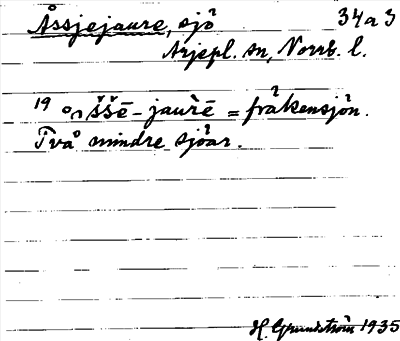 Åssjejaure, sjö 34a3
Arjepl. sn, Norrb. l.
19 åššē-jaurē = fräkensjön.
Två mindre sjöar.
H. Grundström 1935